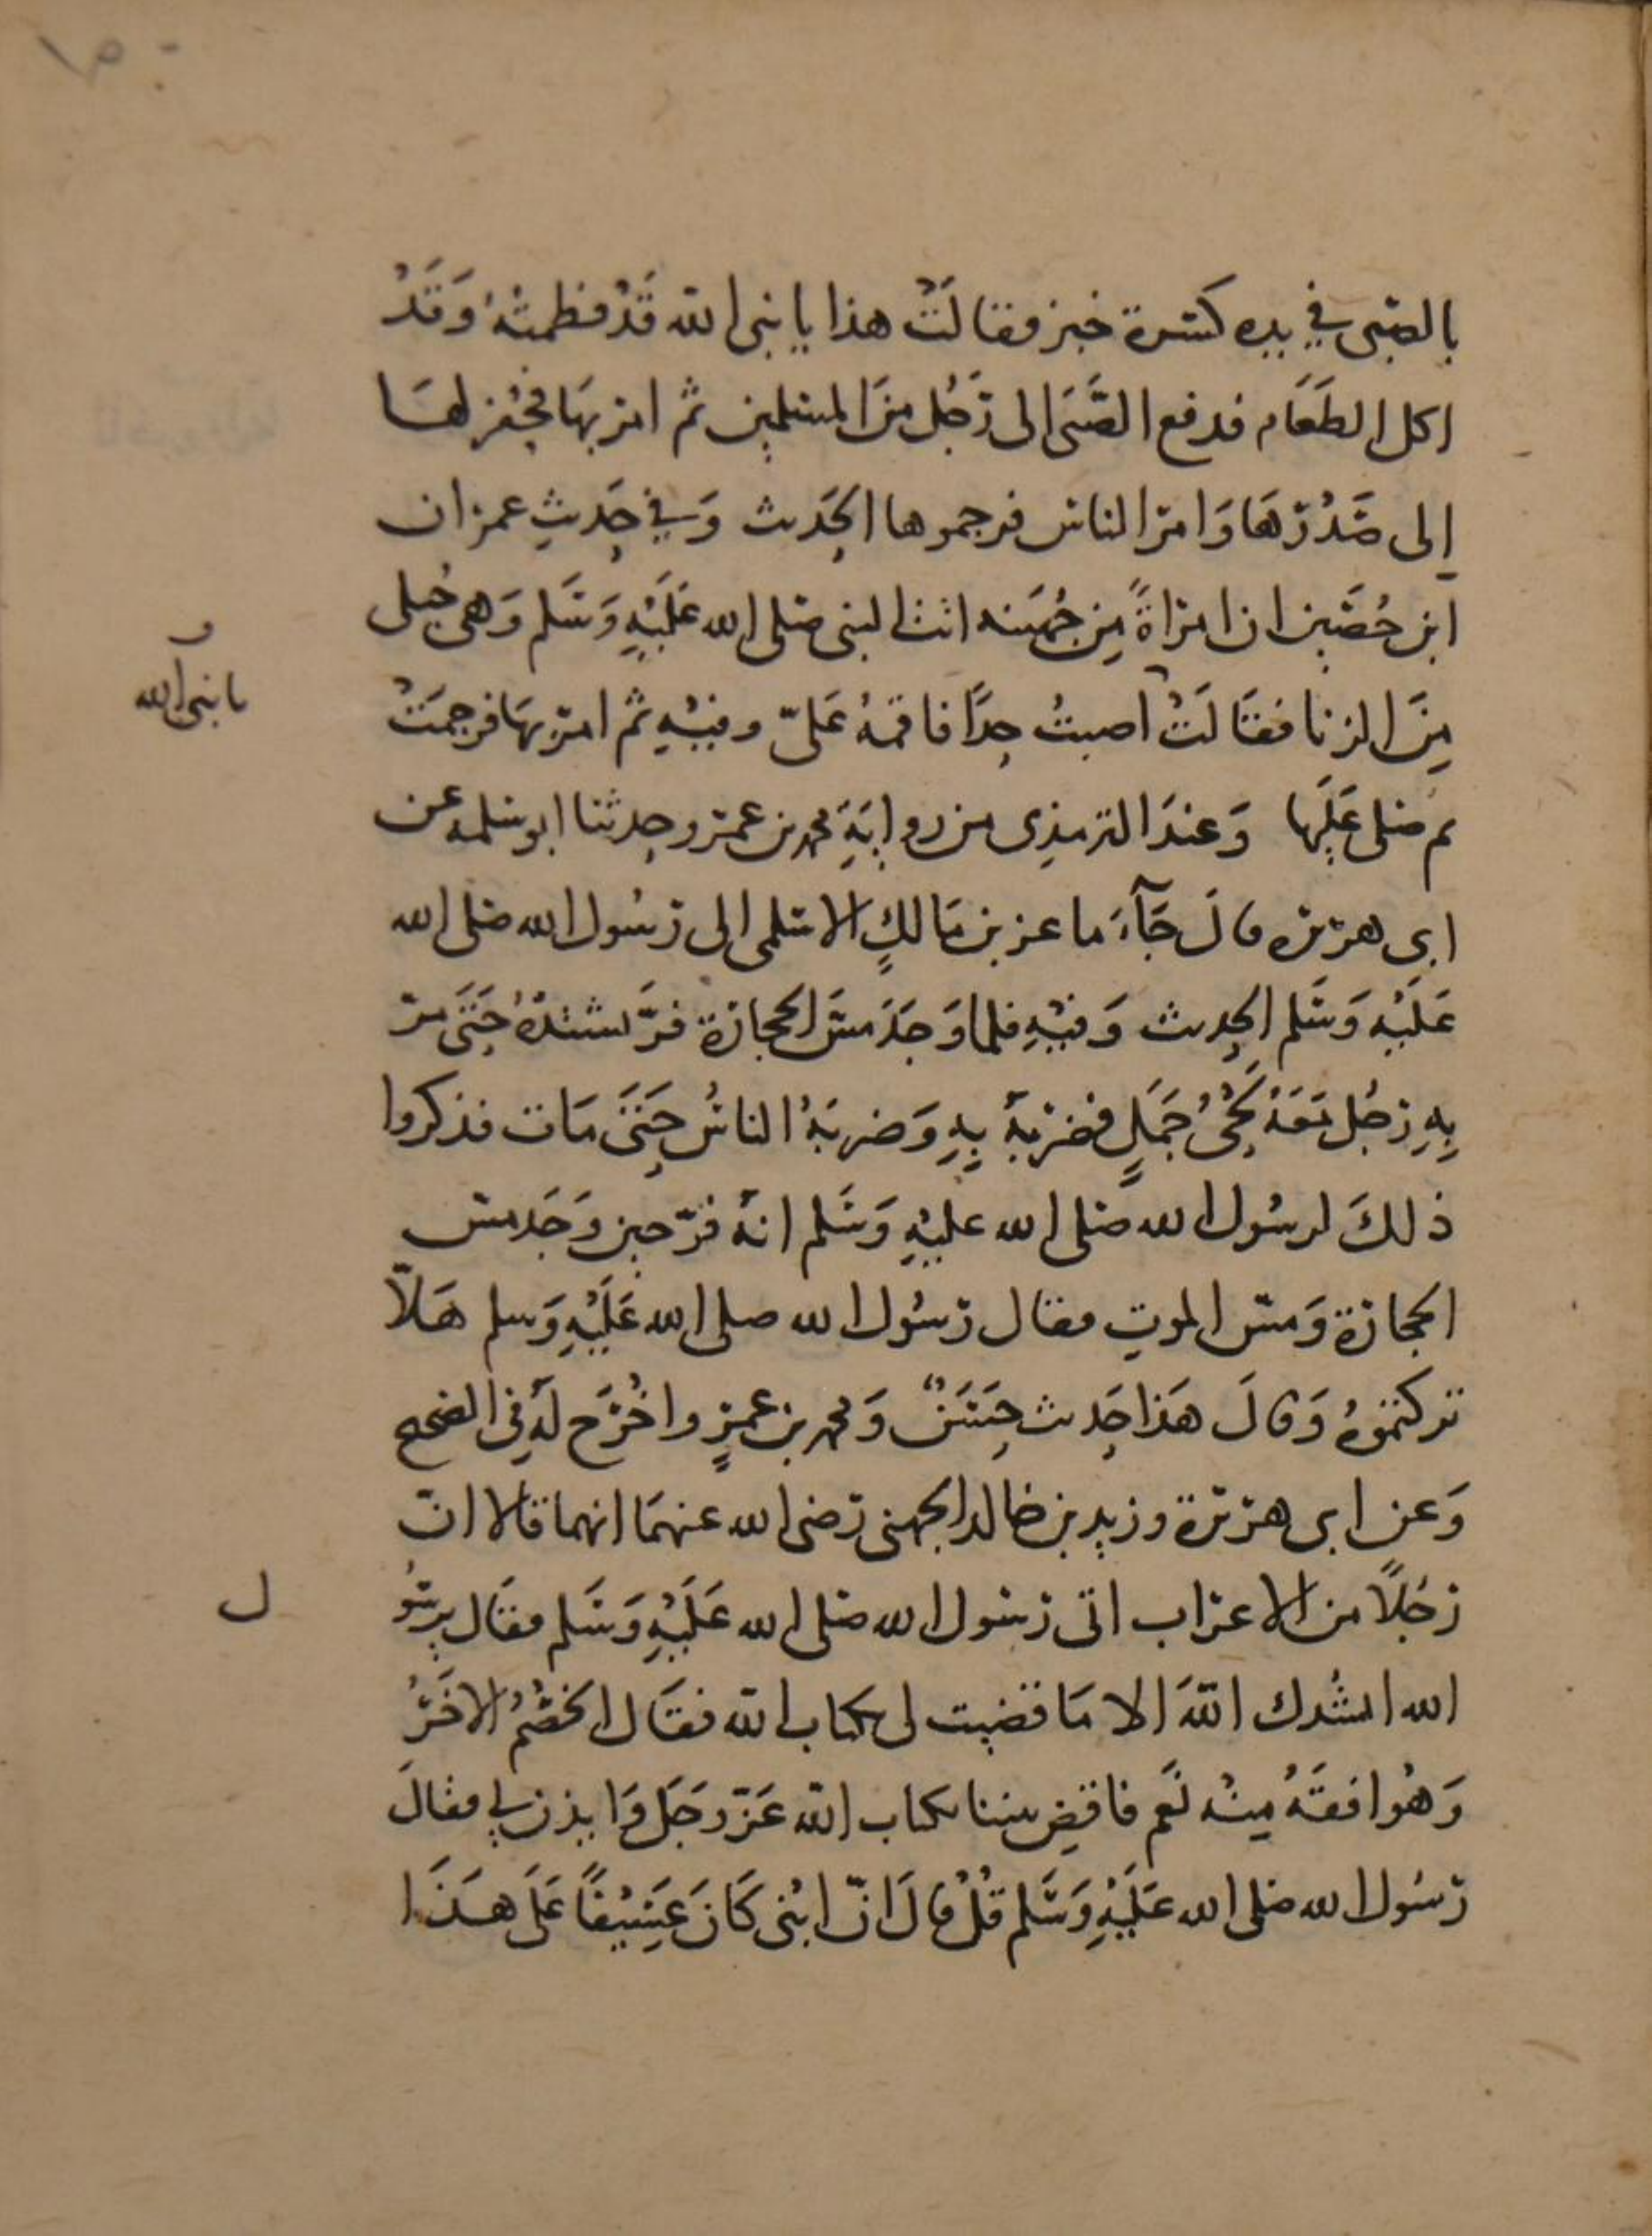 بالصبي في يده كسرة خبز فقالَتْ هذا يا نبى الله قَدْ فطمتُهُ وَقَدْ
اكل الطعَام فدفع الصَّبَى الى رَجُل مِنَ المسلمين ثم امر بهَا فحُفر لهَا
إلى صَدْرهَا وَامر الناس فرجموها الحَدىث وَفي حَدىثِ عمران
ابن حُصَين ان امراةً مِن جُهَينه اتت النبى صَلى الله عَلَيْهِ وَسَلم وَهى حُبلى
مِنَ الزنا فقَالَتْ اصبتُ حدًا فاقمهُ عَلىّ وفيْهِ ثم امر بهَا فرجمَتْ
ثم صَلى عَلَيها وَعندَ الترمذِى من روايَةِ محمد بن عمرو حدثنا ابو سلمه عن
ابى هريره قالَ جَآءَ ماعز بن مَالكٍ الاسلمى الى رَسُول الله صَلى الله
عَلَيْهِ وَسَلم الحدىث وَفيْهِ فلما وَجَدَ مسَّ الحجارة فرَّ يشتدُ حَتَى مر
بِهِ رَجُل مَعَهُ لَحْىُ جَمَلٍ فضربهُ بِهِ وَضربَهُ الناسُ حَتَى مَات فذكروا
ذلكَ لرسُول الله صَلى الله عليْهِ وَسَلم انهُ فرّ حين وَجَد مس
الحجارة وَمسّ الموتِ فقال رَسُول الله صلى الله عَلَيْهِ وَسلم هَلاّ
تركتموُهُ وَقالَ هَذا حَدىث حَسَنٌ وَمحمد بن عمرٍو اخُرَج لَهُ فِي الصحىح
وَعن ابى هريرة وزيد بن خالد الجهنى رَضى الله عنهمَا انهما قالا ان
رَجُلاً من الاعراب اتى رَسُول الله صَلى الله عَلَيْهِ وَسَلم فقَال يرسُو
ل
الله انشدك اللهَ الا مَا قضيت لى بكتاب الله فقَال الخصْمُ الاخَرُ
وَهُو افقَهُ مِنْه نَعَم فاقضِ بيننا بكتاب الله عَزّ وجَل وَايذن لي فقالَ
رَسُول الله صَلى الله عَلَيْهِ وَسَلم قُلْ قالَ انّ ابْنى كَانَ عَسِيْفًا عَلَى هـَذَا
يا نبى الله